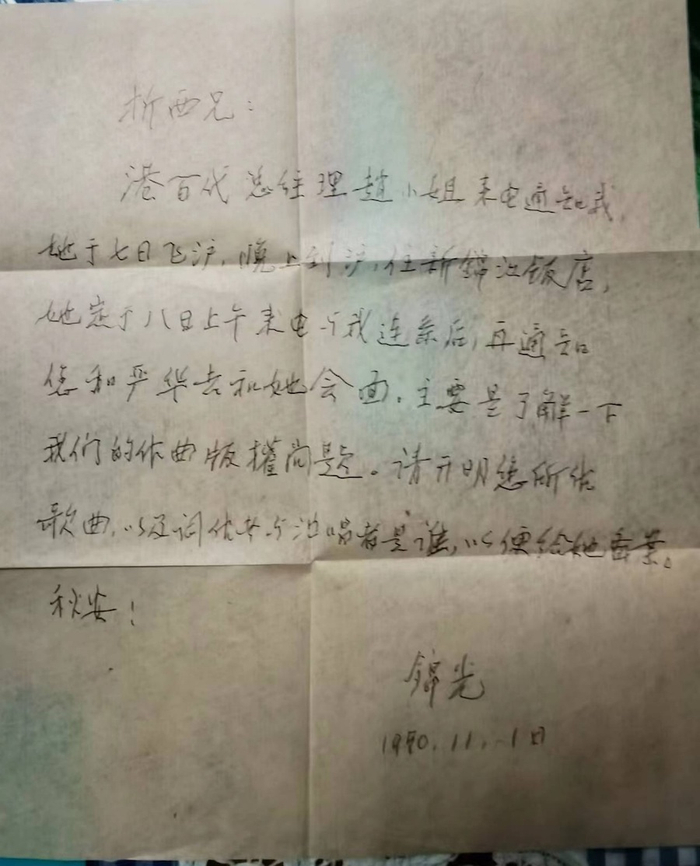 折西兄：
港百代总经理赵小姐来电通知我，
她于七日飞沪，晚上到沪，住新锦江饭店，
她定于八日上午来电与我连系后，再通知
您和严华去和她会面。主要是了解一下
我们的作曲版權问题。请开明您所作
歌曲，以及词作者与泊唱者是谁，以便给她备案。
秋安！
锦光
1990.11.1日